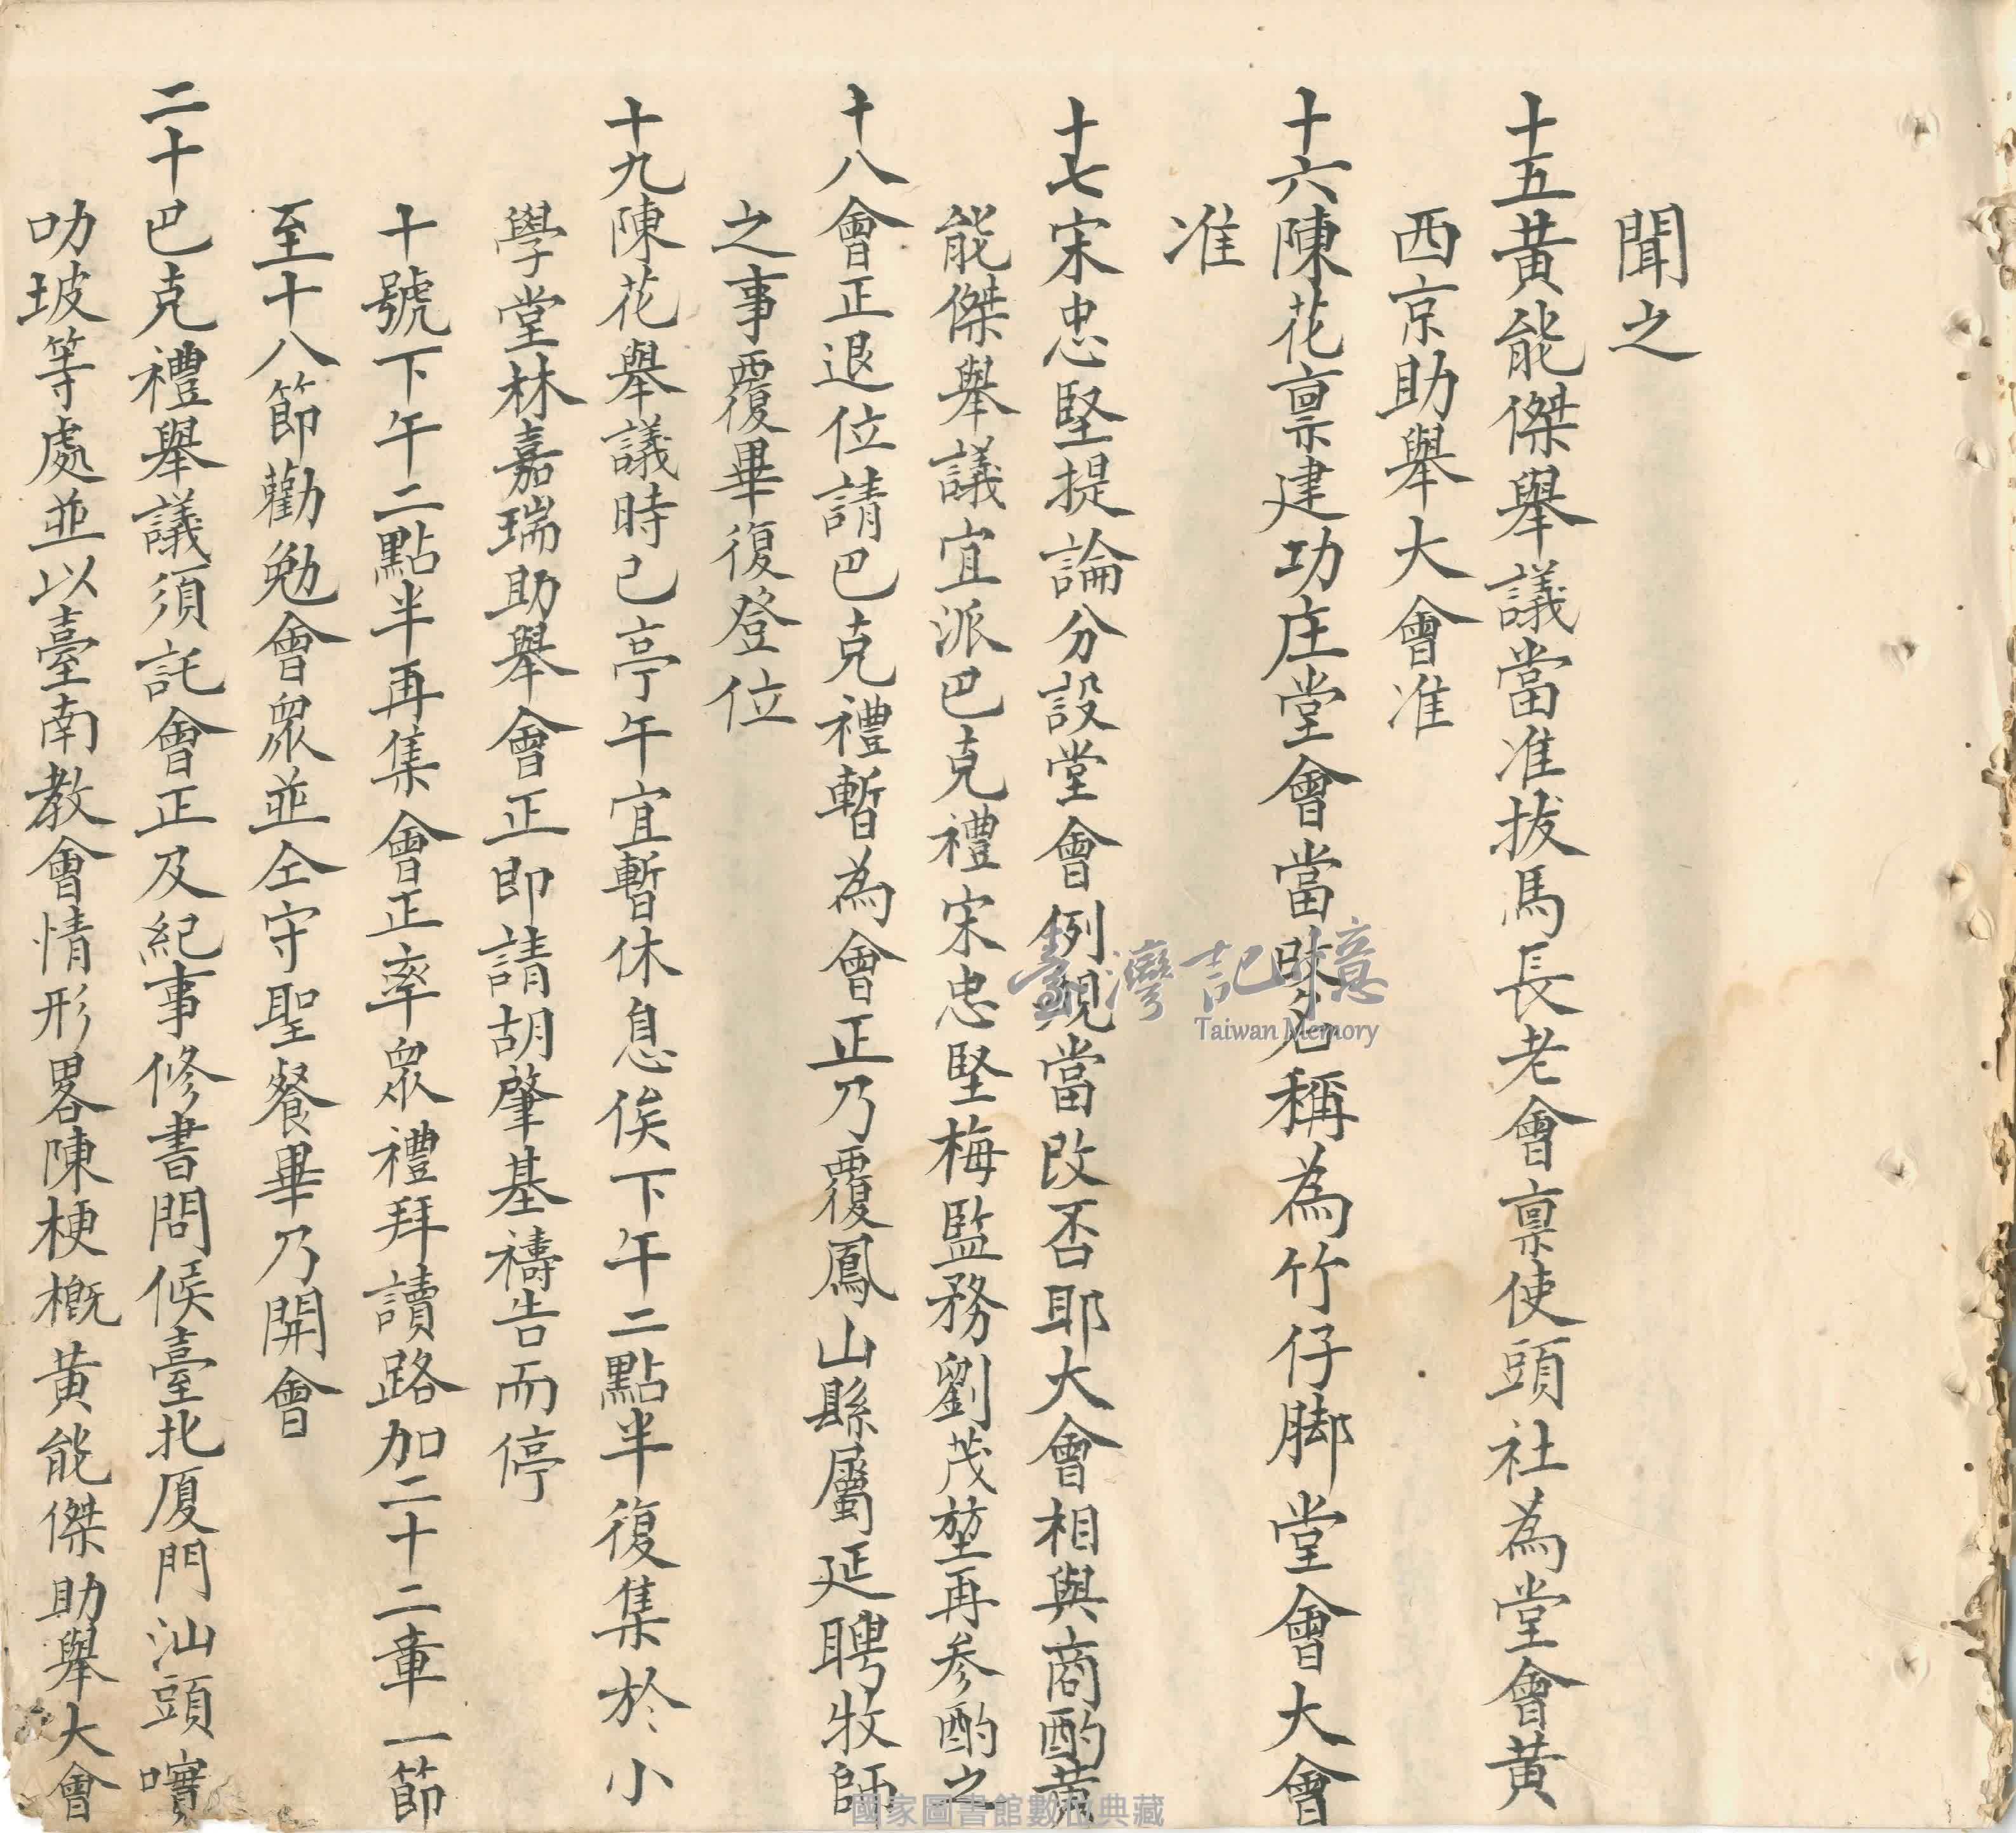 聞之
十五黃能傑舉議當准拔馬長老會稟使頭社為堂會黃
西京助舉大會准
十六陳花稟建功庄堂會當時名稱為竹仔脚堂會大會
准
十七宋忠堅提論分設堂會例規當改否耶大會相與商酌黃
能傑舉議宜派巴克禮宋忠堅梅監務劉茂堃再参酌之
十八會正退位請巴克禮暫為會正乃覆鳳山縣屬延聘牧師
之事覆畢復登位
十九陳花舉議時已亭午宜暫休息俟下午二點半復集於小
學堂林嘉瑞助舉會正即請胡肇基禱告而停
十號下午二點半再集會正率眾禮拜讀路加二十二章一節
至十八節勸勉會眾並仝守聖餐畢乃開會
二十巴克禮舉議須託會正及紀事修書問候臺北厦門汕頭嘪
叻坡等處並以臺南教會情形畧陳梗概黃能傑助舉大會
臺灣記憶
Taiwan Memory
國家圖書館數位典藏